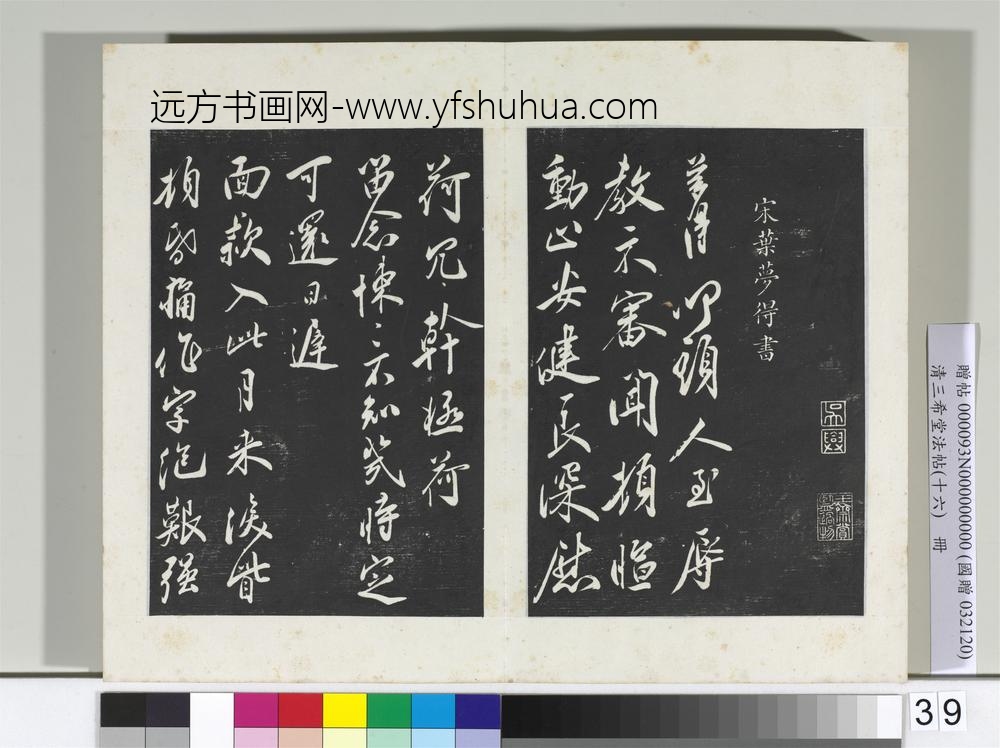 远方书画网-www.yfshuhua.com
宋葉夢得書
夢得 叩頭人至辱
教示審聞頓
動止安健良深慰
荷冗幹極荷
留念悚〻示知幾時定
可還日遲
面款入此月来
頓昏痛作字 艱强
贈帖 000093N000000000 (國贈 032120)
清三希堂法帖(十六) 冊
39